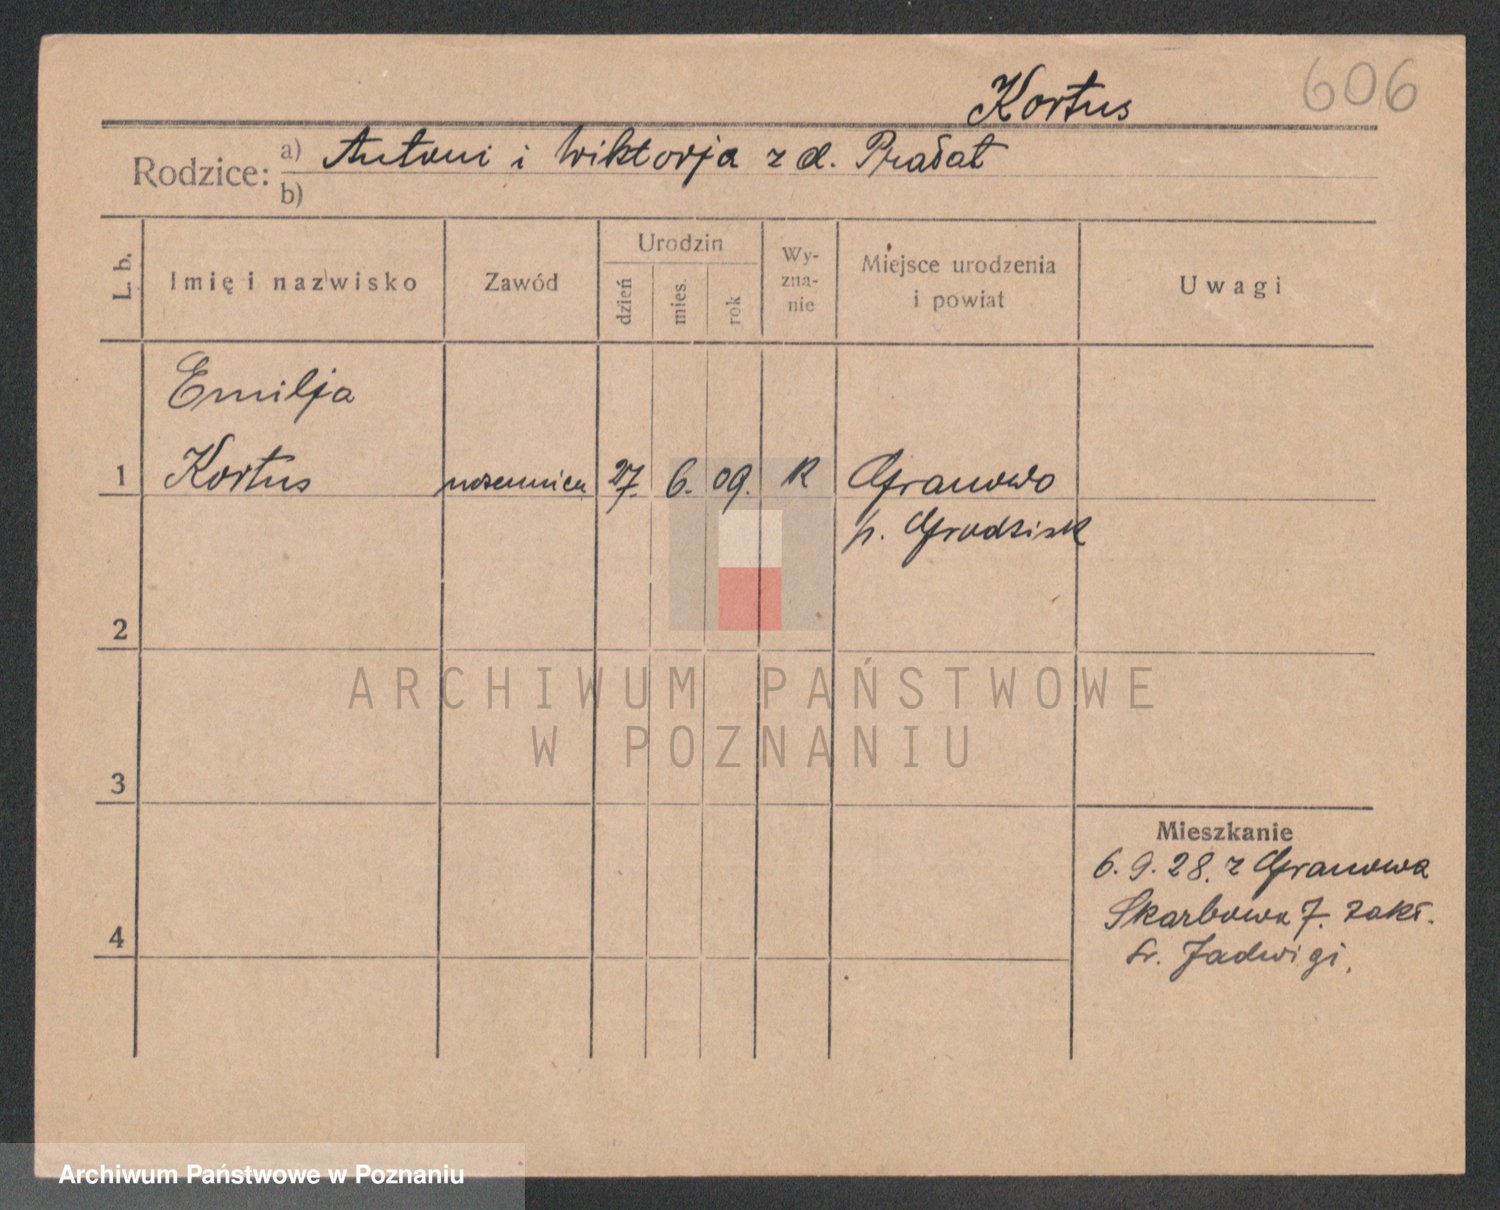 606
Kortus
Rodzice: a) Antoni i Wiktorja z d. Prałat
b)
L. b. Imię i nazwisko Zawód Urodzin dzień mies. rok Wy-zna-nie Miejsce urodzenia i powiat Uwagi
Emilja
1 Kortus uczennica 27. 6. 09. R Granowo
p. Grodzisk
2
ARCHIWUM PAŃSTWOWE
W POZNANIU
3
Mieszkanie
6.9.28. z Granowa
Skarbowa 7. zakł.
św. Jadwigi.
4
Archiwum Państwowe w Poznaniu